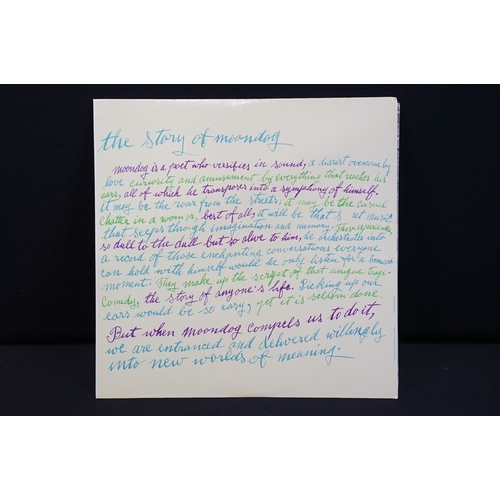 the story of moondog
moondog is a poet who versifies in sound, a diarist overcome by
love curiosity and amusement by everything that reaches his
ears, all of which he transposes into a symphony of himself.
it may be the roar from the streets, it may be the casual
chatter in a room or, best of all, it will be that s ret music
that seeps through imagination and memory. These experiences,
so dull to the dull but so alive to him, he orchestrates into
a record of those enchanting conversations everyone
can hold with himself would he only listen for a
moment. They make up the script of that unique tragi-
comedy, the story of anyone's life. Picking up our
ears would be so easy, yet it is seldom done.
But when moondog compels us to do it,
we are entranced and delivered willingly
into new worlds of meaning.